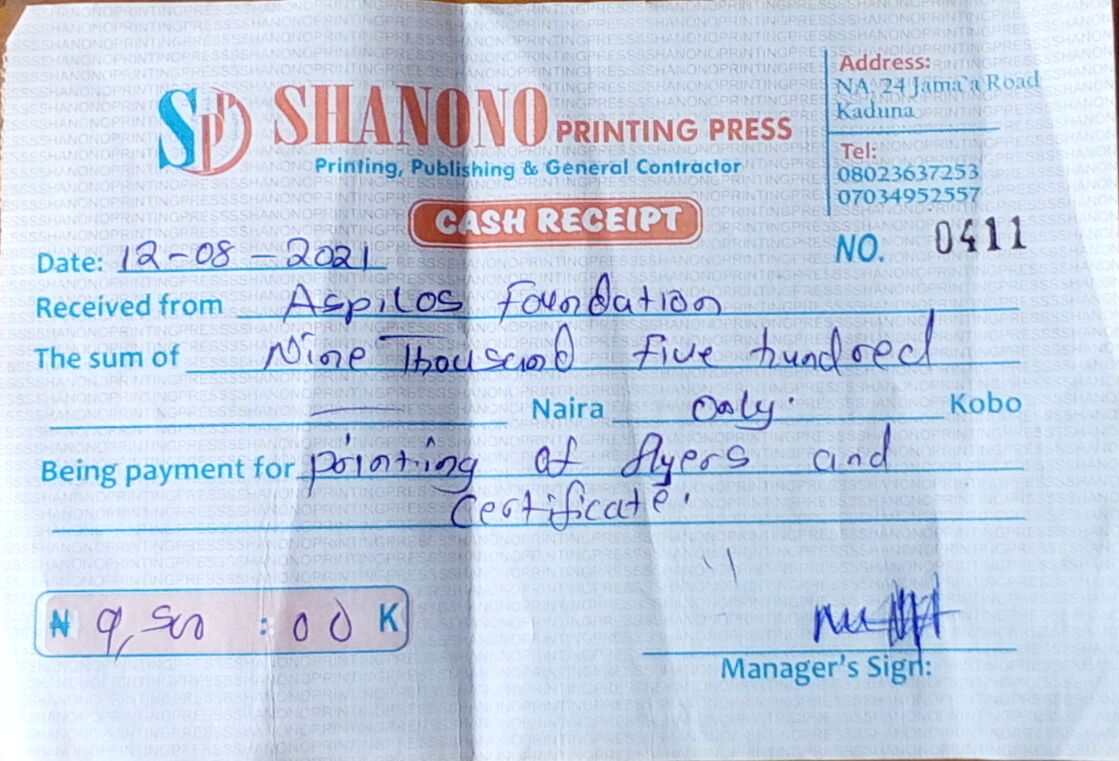 SPP SHANONO PRINTING PRESS
Printing, Publishing & General Contractor
Address:
NA, 24 Jama'a Road
Kaduna
Tel:
08023637253
07034952557
CASH RECEIPT
NO. 0411
Date: 12-08-2021
Received from Aspilos Foundation
The sum of Nine Thousand five hundred
Naira Only. Kobo
Being payment for printing of flyers and
Certificate.
₦ 9,500 : 00 K
Manager's Sign: